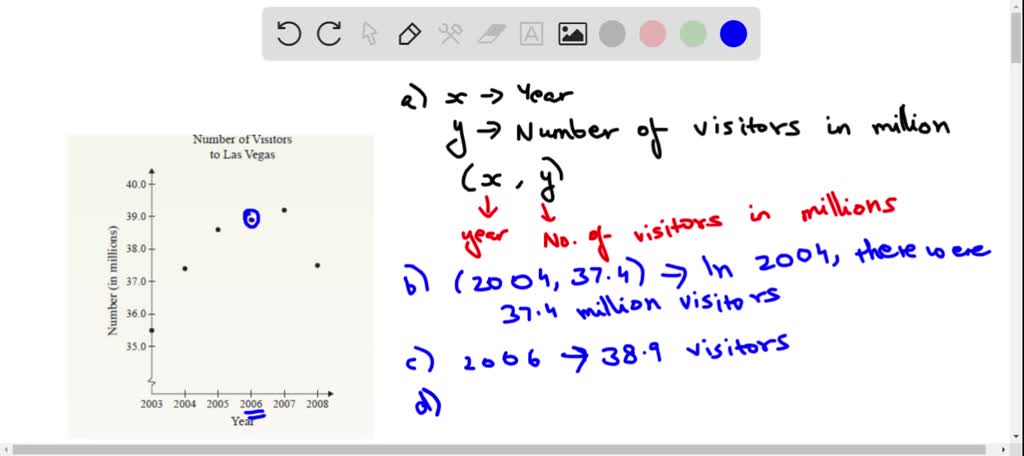 A
Number of Visitors
to Las Vegas
40.0
39.0
38.0
37.0
36.0
35.0
Number (in millions)
2003 2004 2005 2006 2007 2008
Year
a) x → Year
y → Number of visitors in million
(x, y)
year No. of visitors in millions
b) (2004, 37.4) → In 2004, there were
37.4 million visitors
c) 2006 → 38.9 visitors
d)